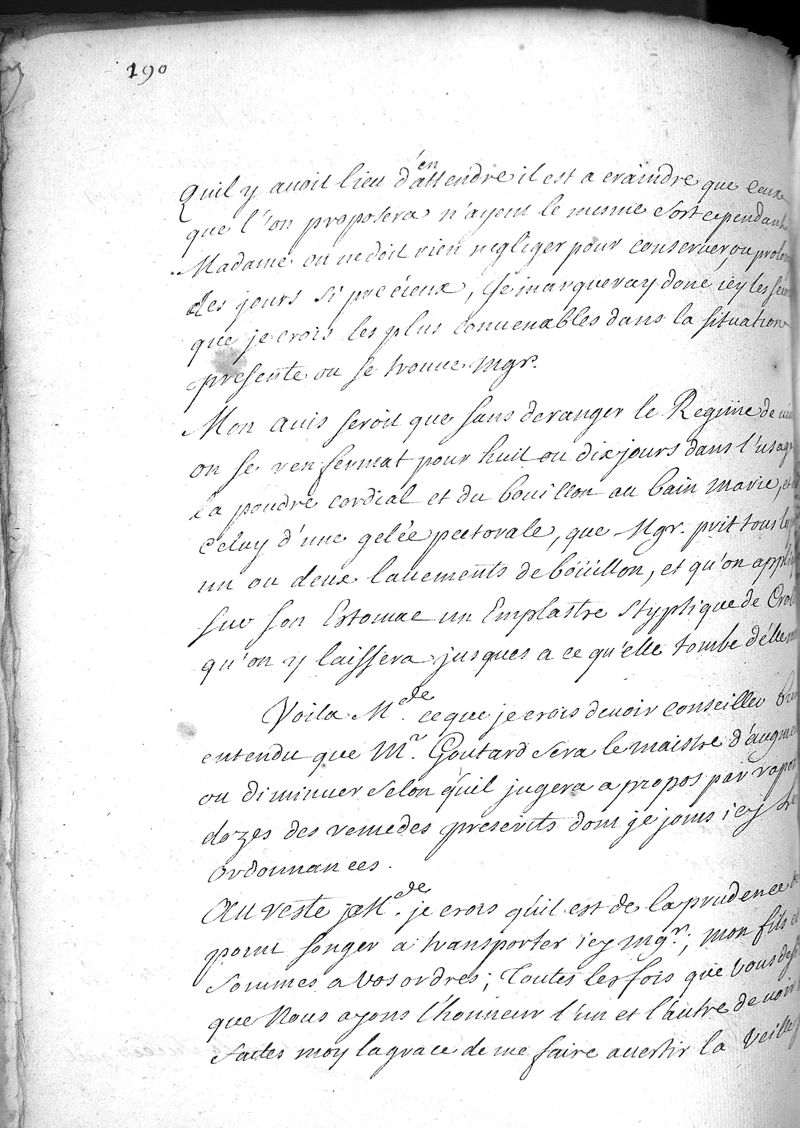 190
Quil y auoit lieu d'en attendre il est a craindre que ceux
que l'on proposera n'ayent le mesme sort cependant
Madame on ne doit rien negliger pour conseruer, ou prolon
des jours si precieux, Je marqueray donc icy les
que je crois les plus conuenables dans la situation
presente ou se trouue Mgr.
Mon auis seroit que sans deranger le Regime de
on se renfermat pour huit ou dix jours dans l'usag
la poudre cordial et du bouillon au bain Marie, et
celuy d'une gelée pectorale, que Mgr. prit tous les
un ou deux lauements de boüillon, et qu'on appliq
sur son Estomac un Emplastre styptique de Crol
qu'on y laissera jusques a ce qu'elle tombe d'elle
Voila Mde. ce que je crois deuoir conseiller
entendu que Mr. Goutard sera le maistre d'augme
ou diminuer selon qu'il jugera a propos par rapor
dozes des remedes prescrits dont je joins icy
ordonnances.
Au reste Mde. je crois qu'il est de la prudence de
point songer a transporter icy Mgr.; mon fils et
sommes a vos ordres; Toutes les fois que vous
que Nous ayons l'honneur l'un et l'autre de voir
faites moy la grace de me faire auertir la veille